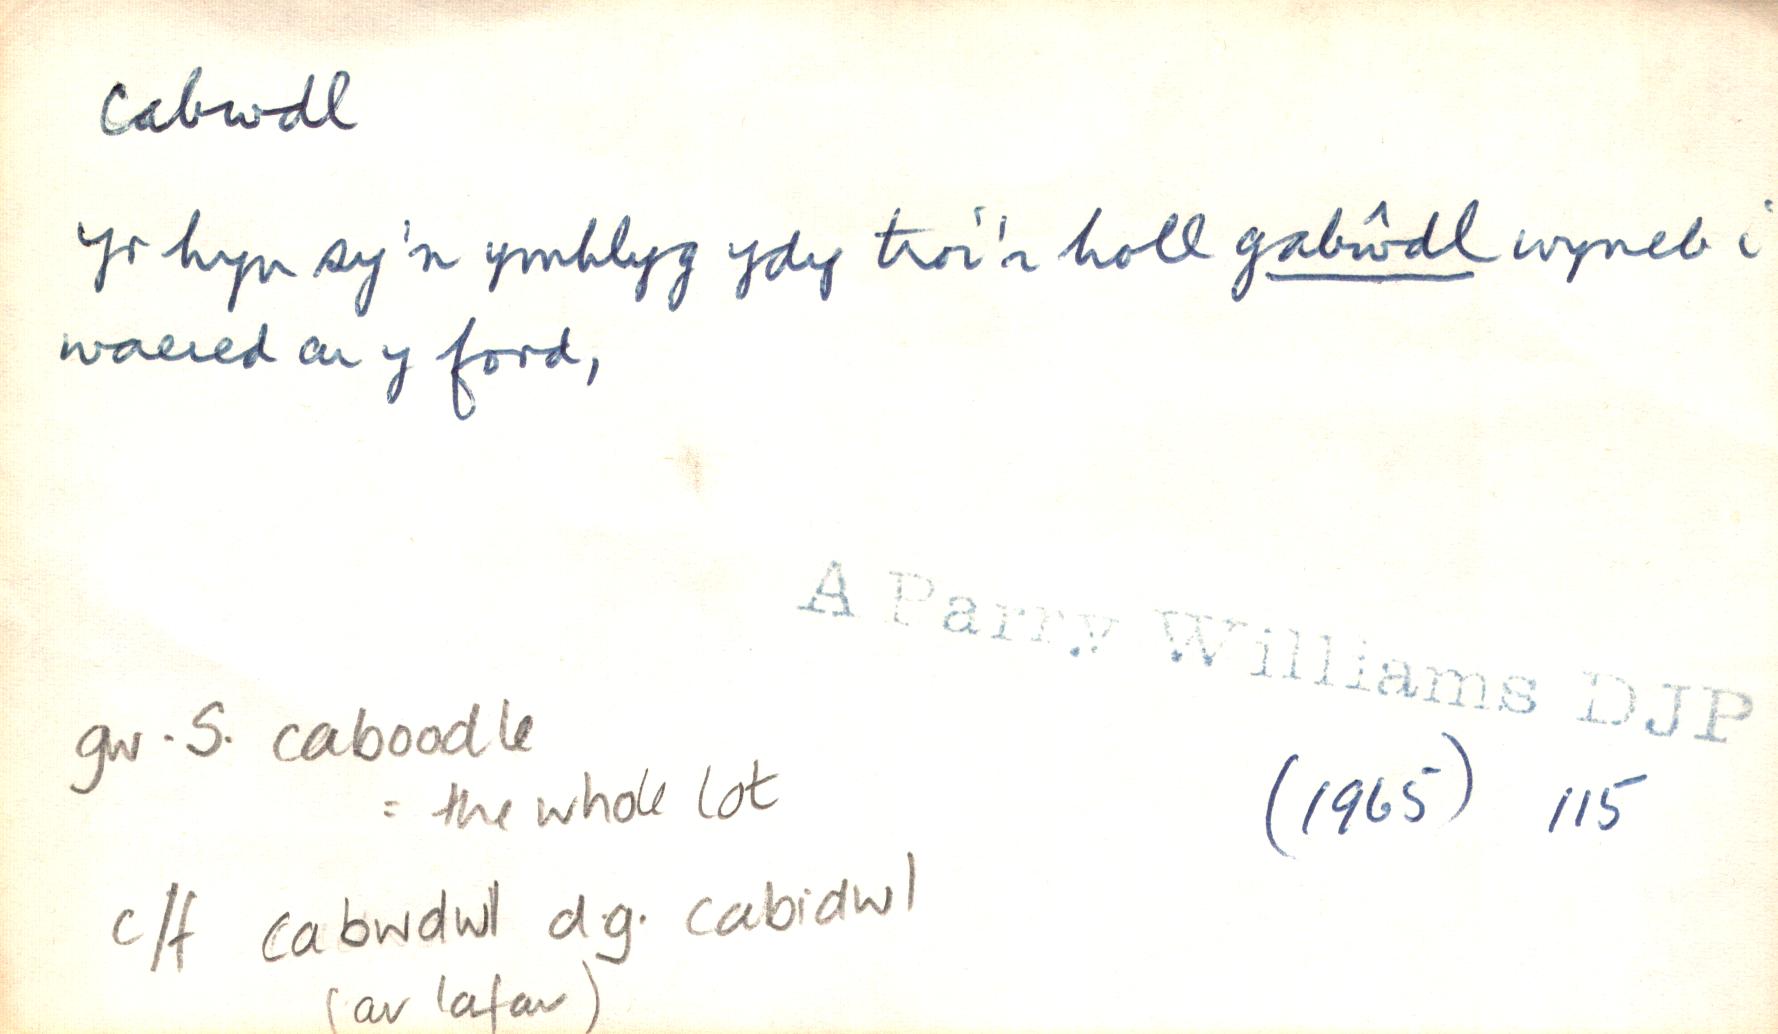 cabwdl
Yr hyn sy'n ymhlyg ydy troi'r holl gabŵdl wyneb i
waered ar y ford,
A Parry Williams DJP
(1965) 115
gw. S. caboodle
= the whole lot
c/f cabwdwl d.g. cabidwl
(ar lafar)